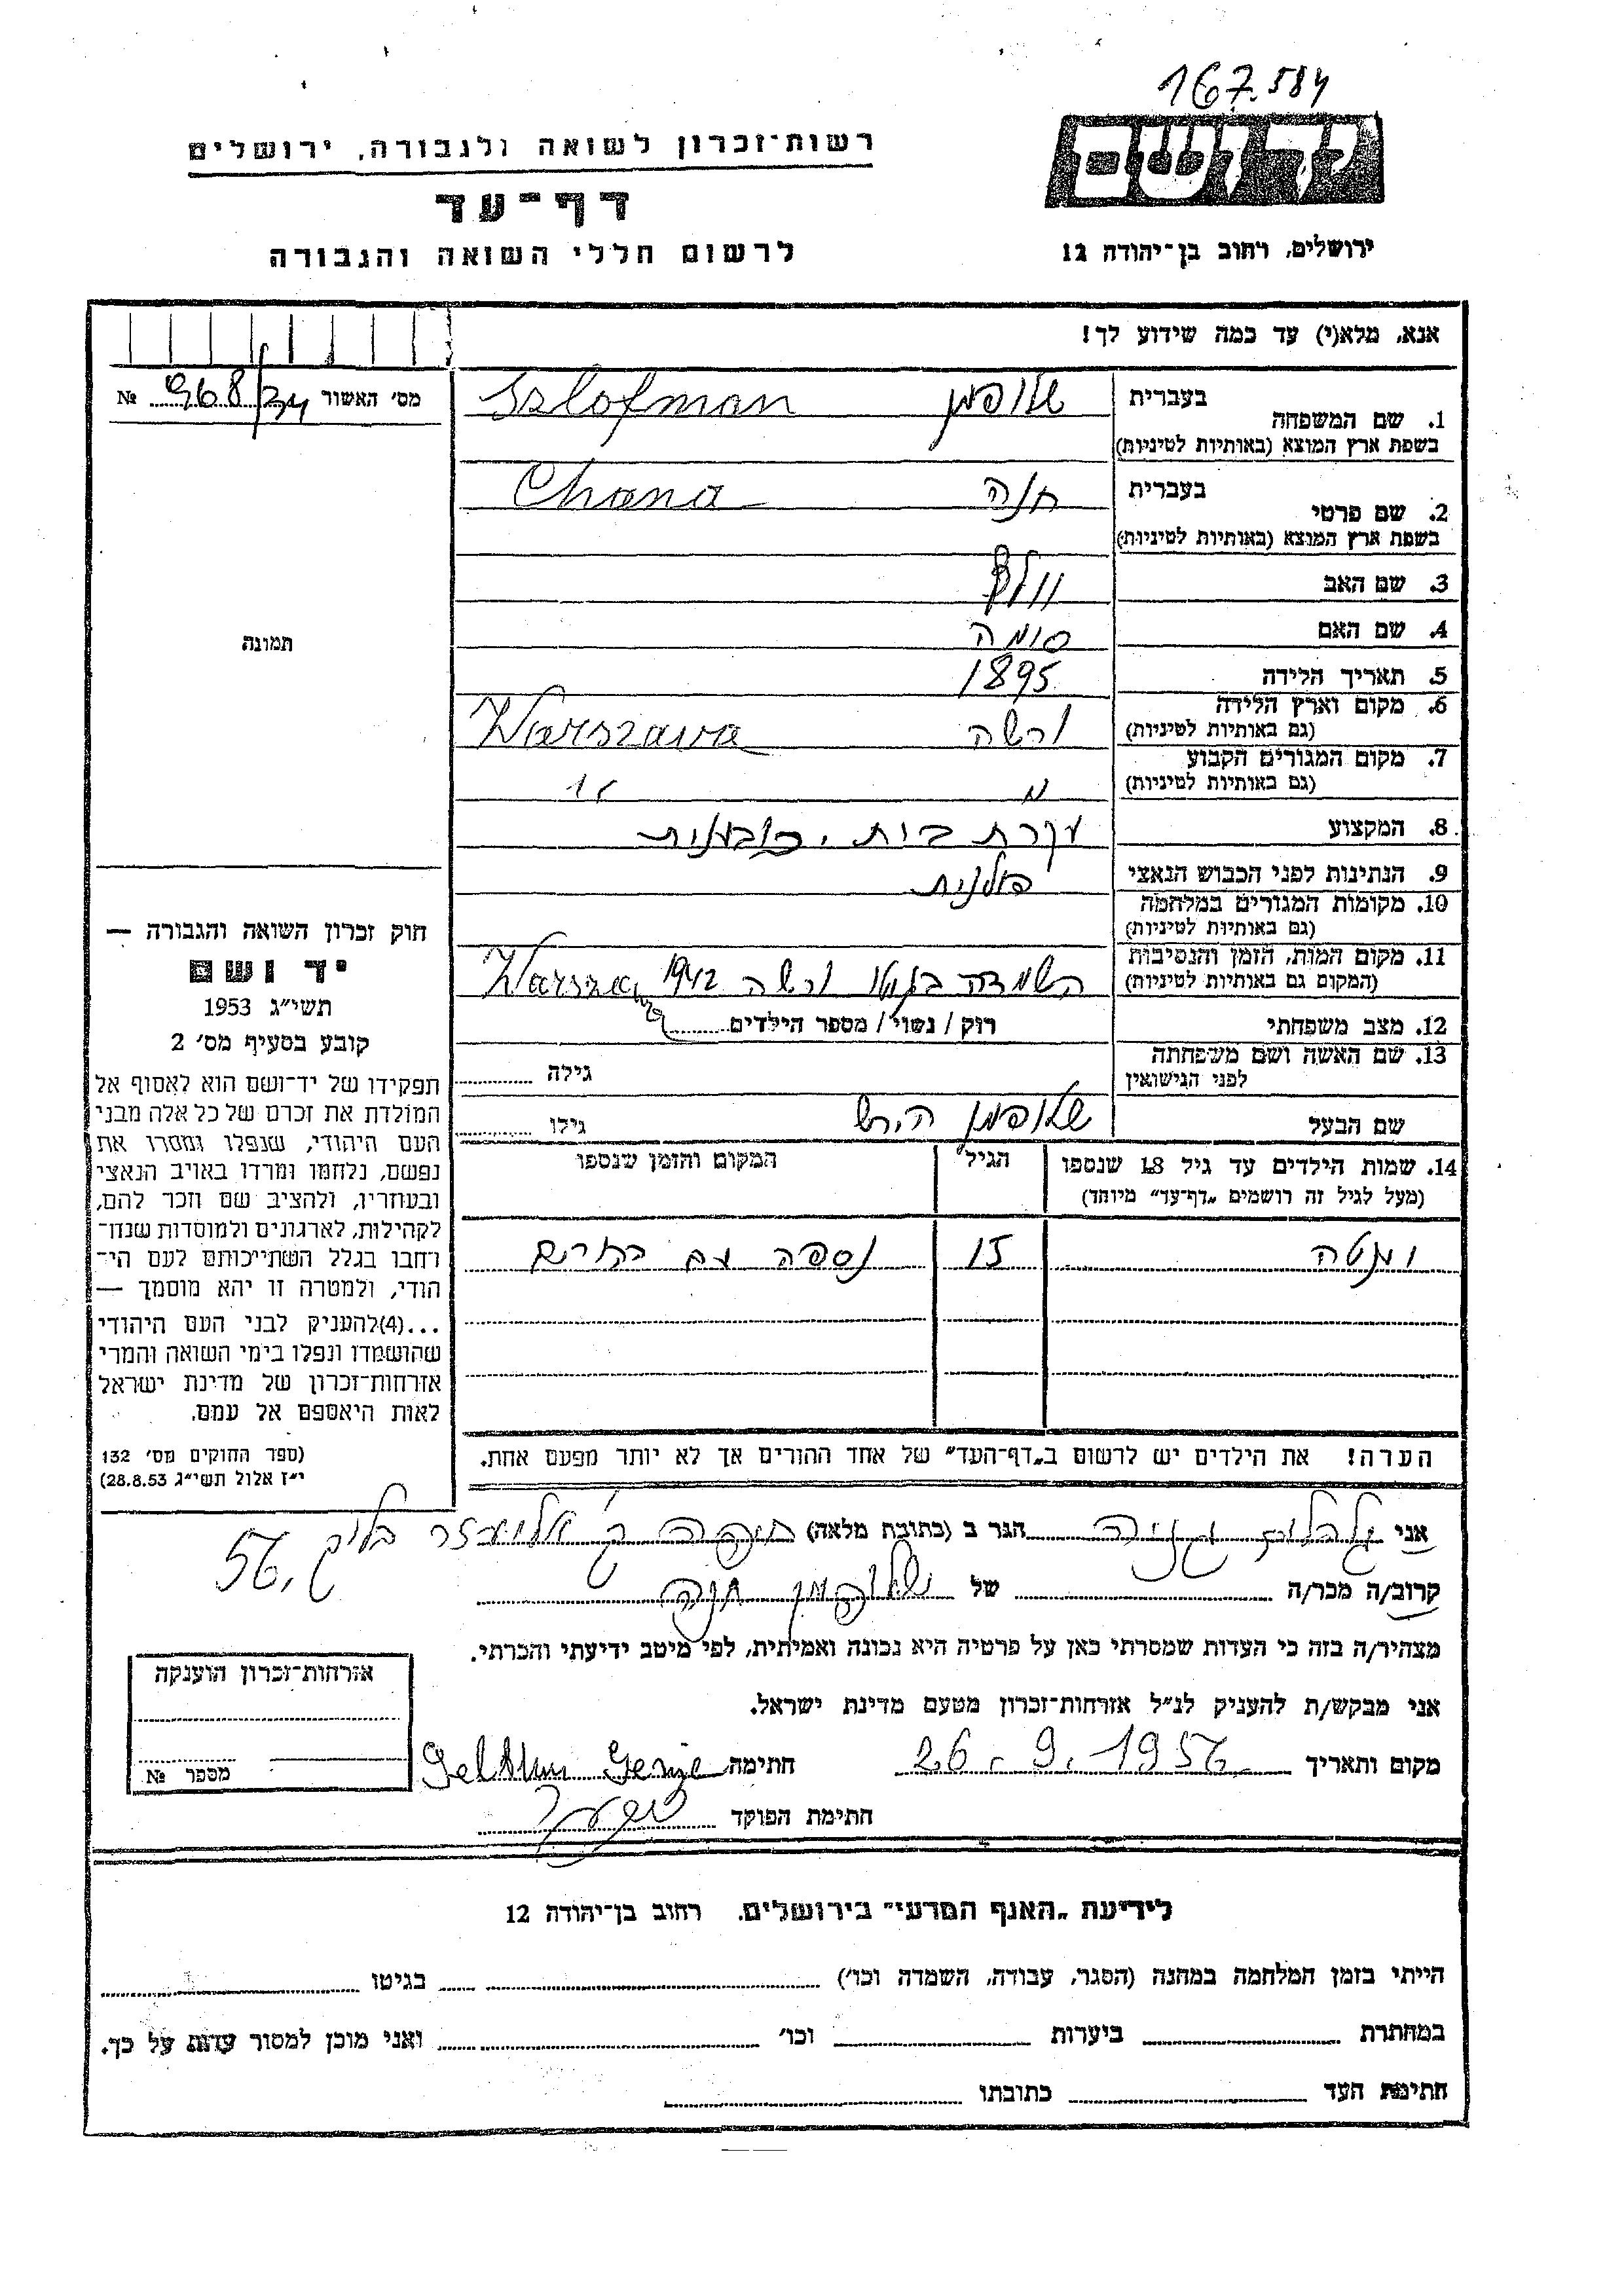 167.584
יד ושם
רשות־זכרון לשואה ולגבורה, ירושלים
דף־עד
לרשום חללי השואה והגבורה
ירושלים, רחוב בן־יהודה 12
אנא, מלא(י) עד כמה שידוע לך!
מס׳ האשור 968/34 №
1. שם המשפחה בעברית שלופמן Szlofman
בשפת ארץ המוצא (באותיות לטיניות)
2. שם פרטי בעברית חנה Chana
בשפת ארץ המוצא (באותיות לטיניות)
3. שם האב וולף
4. שם האם סומה
5. תאריך הלידה 1895
6. מקום וארץ הלידה ורשה Warszawa
(גם באותיות לטיניות)
7. מקום המגורים הקבוע
(גם באותיות לטיניות)
8. המקצוע עקרת בית, כובענית
9. הנתינות לפני הכבוש הנאצי פולנית
10. מקומות המגורים במלחמה
(גם באותיות לטיניות)
11. מקום המות, הזמן והנסיבות השמדה בגטו ורשה 1942 Warszawa
(המקום גם באותיות לטיניות)
12. מצב משפחתי רוק / נשוי / מספר הילדים
13. שם האשה ושם משפחתה
לפני הנישואין גילה
שם הבעל שלופמן הירש גילו
14. שמות הילדים עד גיל 18 שנספו הגיל המקום והזמן שנספו
(מעל לגיל זה רושמים „דף־עד” מיוחד)
ומטה 15 נספה עם ההורים
הערה! את הילדים יש לרשום ב„דף־העד” של אחד ההורים אך לא יותר מפעם אחת.
תמונה
חוק זכרון השואה והגבורה —
יד ושם
תשי״ג 1953
קובע בסעיף מס׳ 2
תפקידו של יד־ושם הוא לאסוף אל
המולדת את זכרם של כל אלה מבני
העם היהודי, שנפלו ומסרו את
נפשם, נלחמו ומרדו באויב הנאצי
ובעוזריו, ולהציב שם וזכר להם,
לקהילות, לארגונים ולמוסדות שנח־
רחבו בגלל השתייכותם לעם הי־
הודי, ולמטרה זו יהא מוסמך —
...(4)להעניק לבני העם היהודי
שהושמדו ונפלו בימי השואה והמרי
אזרחות־זכרון של מדינת ישראל
לאות היאספם אל עמם.
(ספר החוקים מס׳ 132
י״ז אלול תשי״ג 28.8.53)
אני גניה הגר ב (כתובת מלאה) חיפה אליעזר
56
קרוב/ה מכר/ה של שלופמן חנה
מצהיר/ה בזה כי העדות שמסרתי כאן על פרטיה היא נכונה ואמיתית, לפי מיטב ידיעתי והכרתי.
אני מבקש/ת להעניק לנ״ל אזרחות־זכרון מטעם מדינת ישראל.
מקום ותאריך 26.9.1956 חתימה
חתימת הפוקד
אזרחות־זכרון הוענקה
מספר №
לידיעת „האגף המדעי” בירושלים. רחוב בן־יהודה 12
הייתי בזמן המלחמה במחנה (הסגר, עבודה, השמדה וכו׳) בגיטו
במחתרת ביערות וכו׳ ואני מוכן למסור עדות על כך.
חתימת העד כתובתו